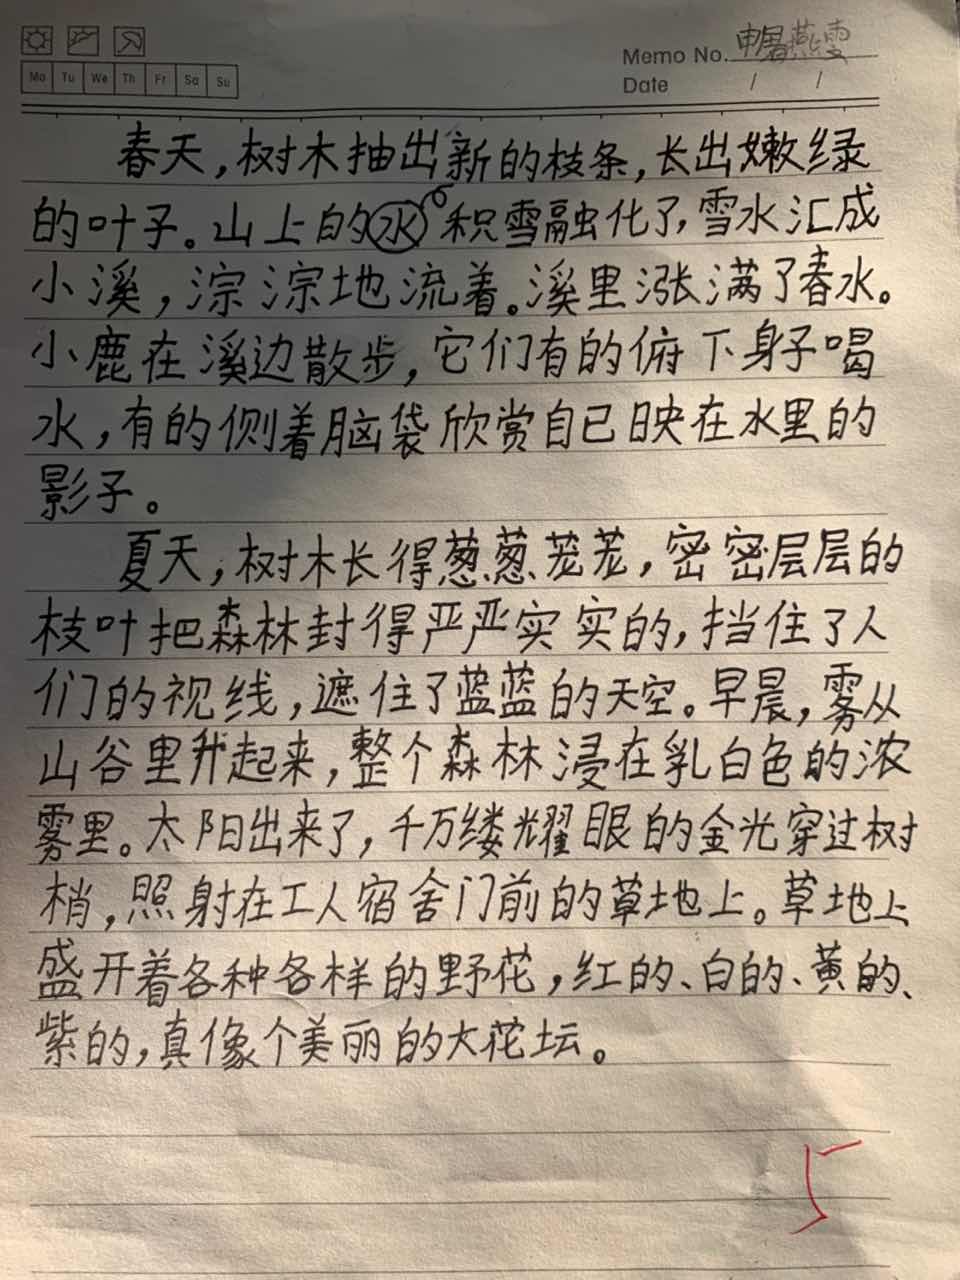 Memo No. 申暑燕雯
Mo Tu We Th Fr Sa Su
Date / /
春天，树木抽出新的枝条，长出嫩绿
的叶子。山上的水积雪融化了，雪水汇成
小溪，淙淙地流着。溪里涨满了春水。
小鹿在溪边散步，它们有的俯下身子喝
水，有的侧着脑袋欣赏自己映在水里的
影子。
夏天，树木长得葱葱茏茏，密密层层的
枝叶把森林封得严严实实的，挡住了人
们的视线，遮住了蓝蓝的天空。早晨，雾从
山谷里升起来，整个森林浸在乳白色的浓
雾里。太阳出来了，千万缕耀眼的金光穿过树
梢，照射在工人宿舍门前的草地上。草地上
盛开着各种各样的野花，红的、白的、黄的、
紫的，真像个美丽的大花坛。